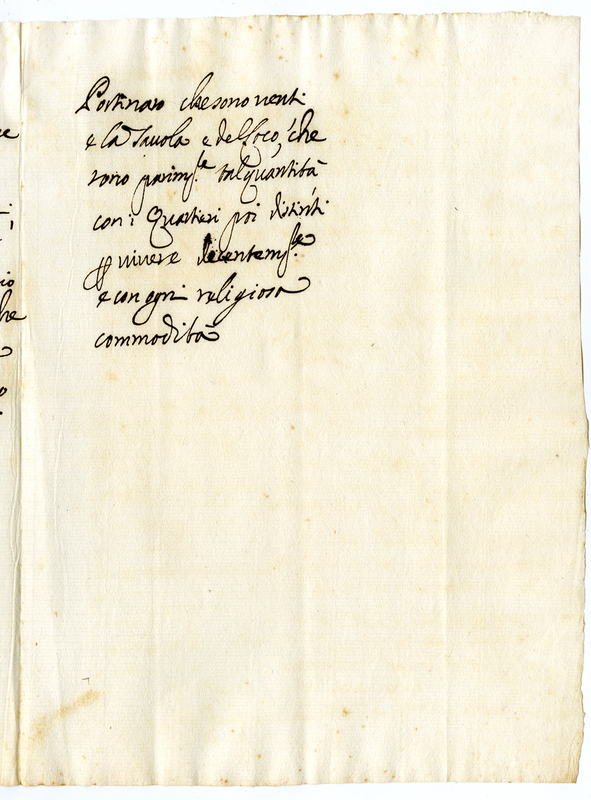 Portinaro che sono venti
e la Tavola e del foco, che
sono parim.te tal quantità
con i Quartieri poi distinti
p vivere decentem.te
e con ogni religiosa
commodità